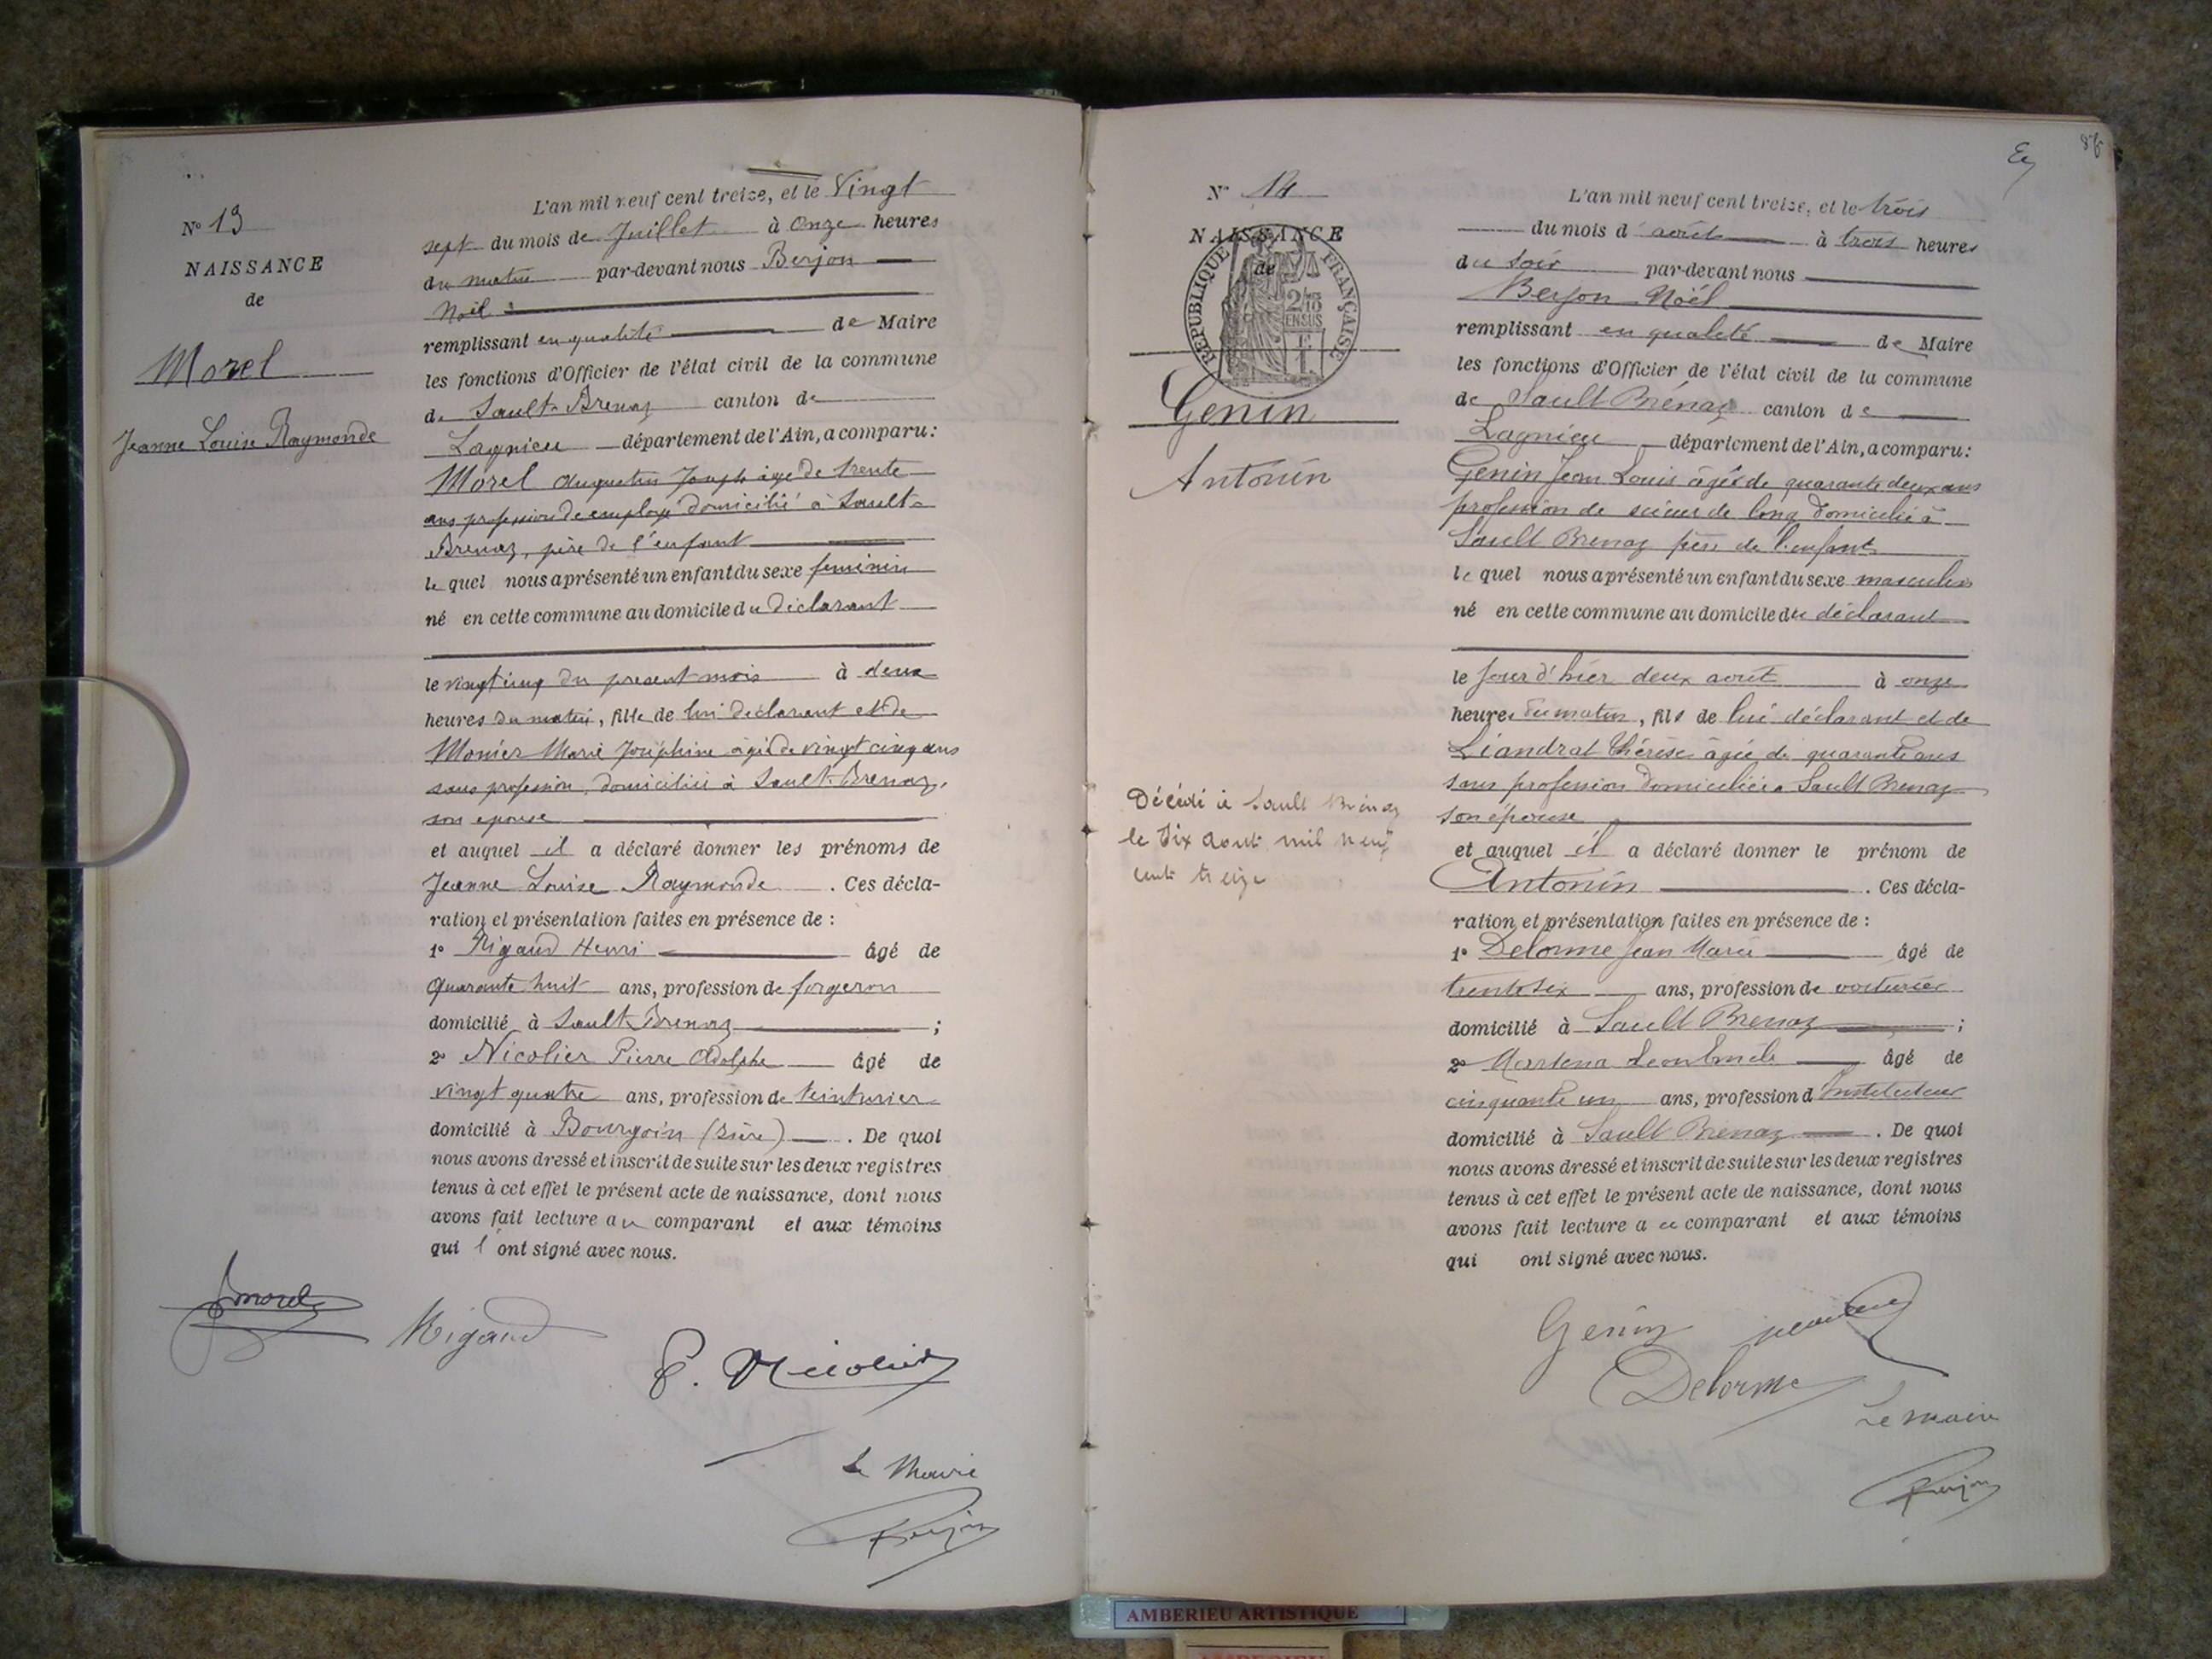 N° 13
NAISSANCE
de
Morel
Jeanne Louise Raymonde
L'an mil neuf cent treize, et le Vingt
sept du mois de Juillet à onze heures
du matin par-devant nous Berjon
Noël
remplissant en qualité de Maire
les fonctions d'Officier de l'état civil de la commune
de Sault-Brenaz canton de
Lagnieu département de l'Ain, a comparu :
Morel Augustin Joseph âgé de trente
ans profession de employé domicilié à Sault-
Brenaz, père de l'enfant
le quel nous a présenté un enfant du sexe feminin
né en cette commune au domicile du déclarant
le vingt cinq du present mois à deux
heures du matin, fille de lui déclarant et de
Monier Marie Joséphine âgée de vingt cinq ans
sans profession, domiciliée à Sault-Brenaz,
son epouse
et auquel il a déclaré donner les prénoms de
Jeanne Louise Raymonde . Ces décla-
ration et présentation faites en présence de :
1° Rigaud Henri âgé de
quarante huit ans, profession de forgeron
domicilié à Sault-Brenaz ;
2° Nicolier Pierre Adolphe âgé de
vingt quatre ans, profession de teinturier
domicilié à Bourgoin (Isère) . De quoi
nous avons dressé et inscrit de suite sur les deux registres
tenus à cet effet le présent acte de naissance, dont nous
avons fait lecture au comparant et aux témoins
qui l'ont signé avec nous.
Morel
Rigaud
P. Nicolier
Le Maire
Berjon
Nº 14
NAISSANCE
de
RÉPUBLIQUE FRANÇAISE
Genin
Antonin
Décédé à Sault Brénaz
le dix aout mil neuf
cent treize
L'an mil neuf cent treize, et le trois
du mois d'août à trois heures
du soir par-devant nous
Berjon Noël
remplissant en qualité de Maire
les fonctions d'Officier de l'état civil de la commune
de Sault Brénaz canton de
Lagnieu département de l'Ain, a comparu :
Genin Jean Louis âgé de quarante deux ans
profession de scieur de long domicilié à
Sault Brenaz père de l'enfant
le quel nous a présenté un enfant du sexe masculin
né en cette commune au domicile du déclarant
le jour d'hier deux août à onze
heures du matin, fils de lui déclarant et de
Liandrat Thérèse âgée de quarante ans
sans profession domiciliée à Sault Brenaz
son épouse
et auquel il a déclaré donner le prénom de
Antonin . Ces décla-
ration et présentation faites en présence de :
1° Delorme Jean Marie âgé de
trente six ans, profession de voiturier
domicilié à Sault Brenaz ;
2° âgé de
cinquante un ans, profession d'instituteur
domicilié à Sault Brenaz . De quoi
nous avons dressé et inscrit de suite sur les deux registres
tenus à cet effet le présent acte de naissance, dont nous
avons fait lecture au comparant et aux témoins
qui ont signé avec nous.
Genin
Delorme
Le maire
Berjon
AMBERIEU ARTISTIQUE
AMBERIEU